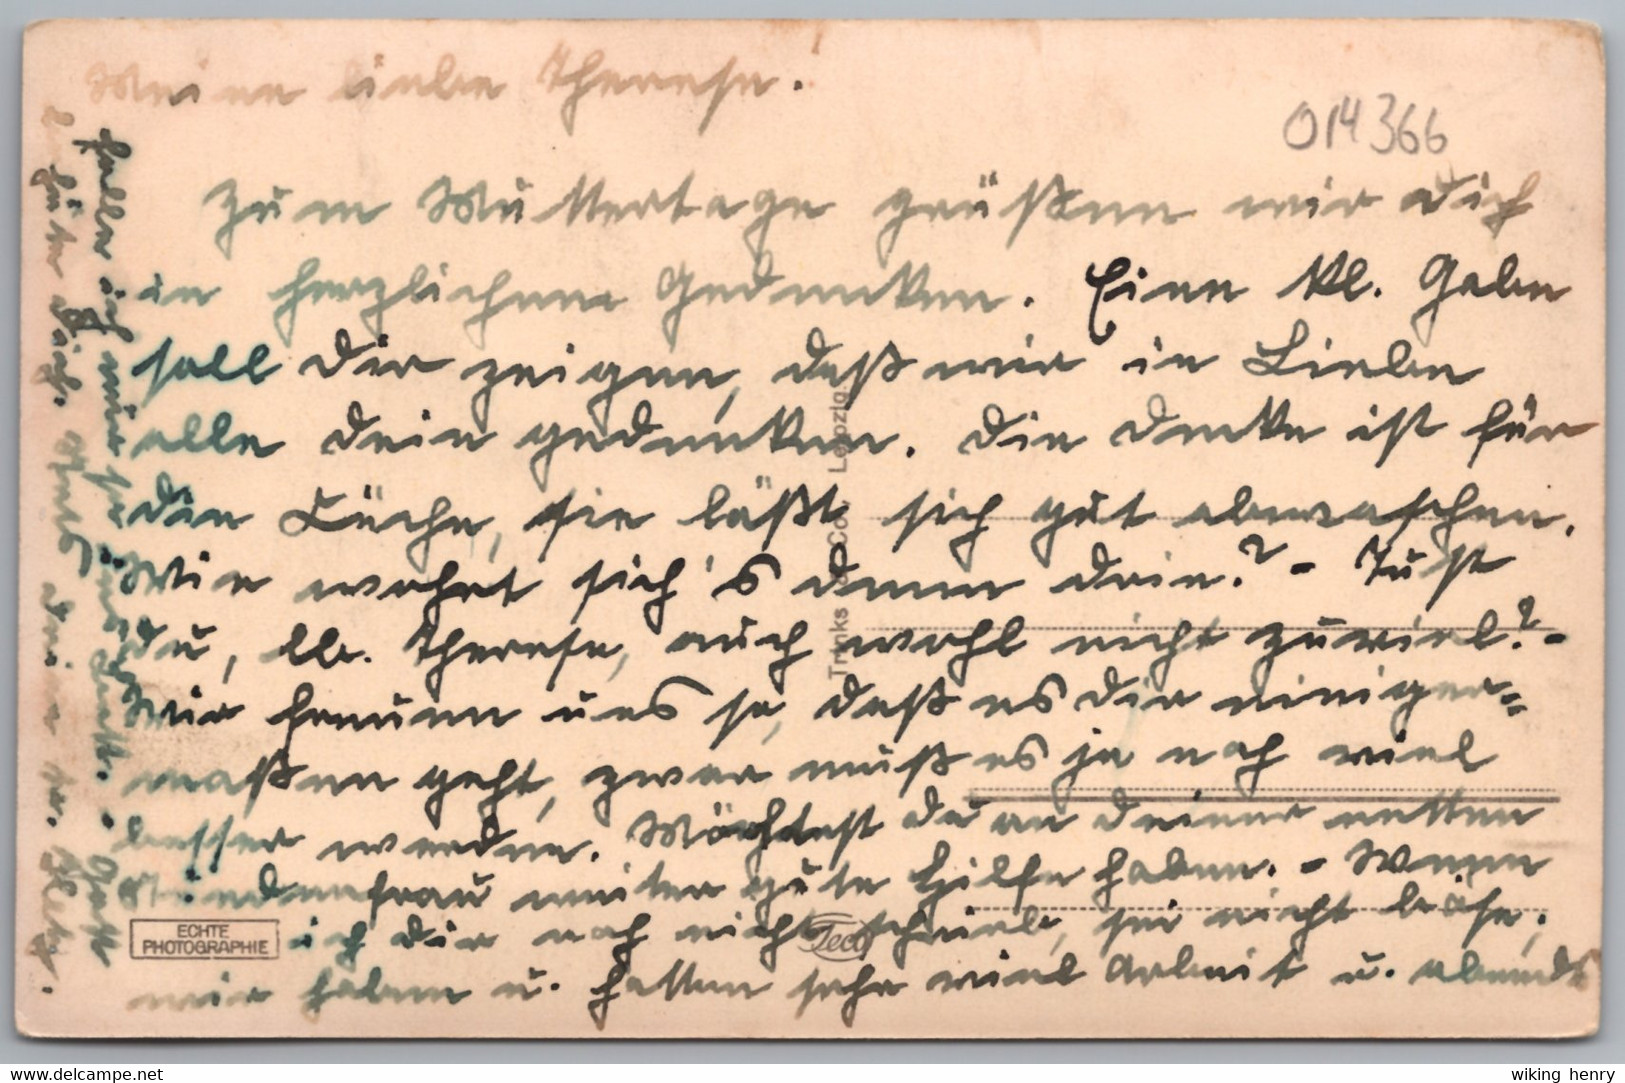 Meine liebe Therese.
014366
Zum Muttertage grüßen wir Dich
in herzlichem Gedenken. Eine kl. Gabe
soll Dir zeigen, daß wir in Liebe
alle Dein gedenken. Die Decke ist für
die Küche, sie läßt sich gut abwaschen.
Wie wohnt sich's denn drin? - Tust
Du, lb. Therese, auch wohl nicht zuviel? -
Wir freuen uns so, daß es Dir einiger=
maßen geht, zwar muß es ja noch viel
besser werden. Möchtest Du an Deiner netten
Stundenfrau weiter gute Hilfe haben. - Wenn
ich Dir noch nicht schrieb, sei nicht böse;
wir haben u. hatten sehr viel Arbeit u. abends
falle ich um
Gott
behüte Dich.
Stets Deine
ECHTE
PHOTOGRAPHIE
Trinks & Co., Leipzig
www.delcampe.net
wiking_henry